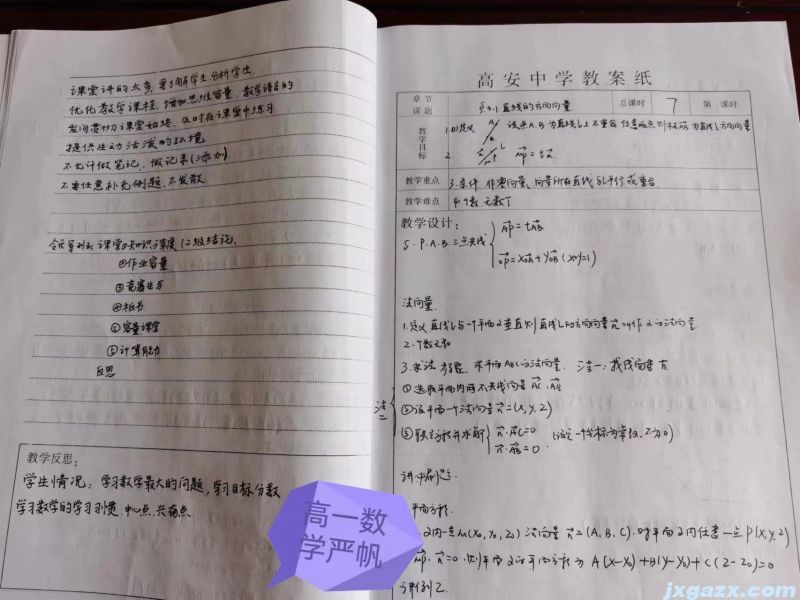 课堂讲的太多,要了解学生分析学生
优化教学课程、增加思维容量、教学语言的
发问贯彻课堂始终、及时在课堂中练习
提供生动活泼的环境
不允许做笔记,做记录(添加)
不要任意补充例题,不发散
课堂知识深度(二级结论)
②作业容量
③竞赛生与
④板书
⑤容量课堂
⑤计算能力
反思
教学反思:
学生情况:学习数学最大的问题,学习目标分数
学习数学的学习习惯、中心点、兴奋点
高一数
学严帆
高安中学教案纸
章节
课题
直线的方向向量
总课时 7 第 课时
教学目标
1.(1)定义 设点A、B为直线l上不重合任意两点则 为直线l方向向量
2. AP=ta
教学重点 3.条件 非零向量、向量所在直线与l平行或重合
教学难点 4.个数 无数个
教学设计:
5. P.A.B三点共线 AP=tAB
OP=xOA+yOB (x+y=1)
法向量
1.定义 直线l与一个平面α垂直则直线l的方向向量n叫作α的法向量
2.个数无数
3.求法 求平面ABC的法向量 法一:找线向量n
法二
①选取平面内两不共线向量AC、AB
②设平面一个法向量n=(x,y,z)
③联立方程并求解 n·AC=0 (设定一个坐标为常数,不为0)
n·AB=0
平面方程
α内一点M(x₀,y₀,z₀) 法向量n=(A,B,C).对平面α内任意一点P(x,y,z)
MP·n=0 则平面α的平面方程为 A(x-x₀)+B(y-y₀)+C(z-z₀)=0
讲例2
jxgazx.com